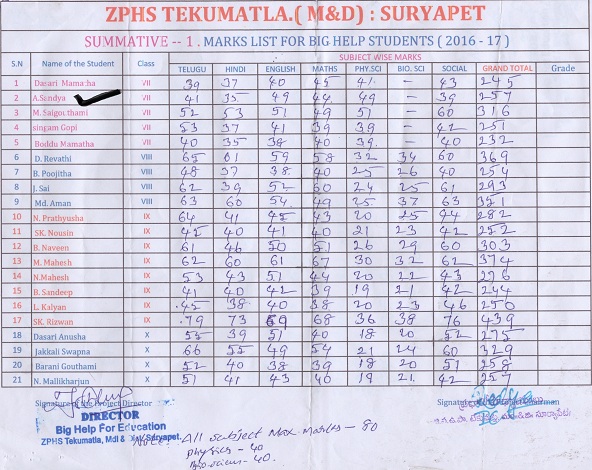 ZPHS TEKUMATLA.( M&D) : SURYAPET
SUMMATIVE -- 1 . MARKS LIST FOR BIG HELP STUDENTS ( 2016 - 17)
S.N Name of the Student Class SUBJECT WISE MARKS
TELUGU HINDI ENGLISH MATHS PHY.SCI BIO. SCI SOCIAL GRAND TOTAL Grade
1 Dasari Mamatha VII 39 37 40 45 41 - 43 245
2 A.Sandya VII 41 35 49 44 49 - 39 257
3 M. Saigouthami VII 52 53 51 49 51 - 60 316
4 singam Gopi VII 53 37 41 39 39 - 42 251
5 Boddu Mamatha VII 40 35 38 40 39 - 40 232
6 D. Revathi VIII 65 61 59 58 32 34 60 369
7 B. Poojitha VIII 48 37 38 40 25 26 40 254
8 J. Sai VIII 62 39 52 60 24 25 61 293
9 Md. Aman VIII 63 60 54 49 25 37 63 351
10 N. Prathyusha IX 64 41 45 43 20 25 44 282
11 SK. Nousin IX 45 40 41 40 21 23 42 252
12 B. Naveen IX 61 46 50 51 26 29 60 303
13 M. Mahesh IX 62 60 61 67 30 32 62 374
14 N.Mahesh IX 53 43 51 44 20 22 43 276
15 B. Sandeep IX 41 40 42 39 19 21 42 244
16 L. Kalyan IX 45 38 40 38 20 23 46 250
17 SK. Rizwan IX 79 73 69 68 36 38 76 439
18 Dasari Anusha X 55 39 51 40 18 20 52 275
19 Jakkali Swapna X 66 55 49 54 21 24 60 329
20 Barani Gouthami X 52 40 38 39 18 20 51 258
21 N. Mallikharjun X 51 41 43 40 19 21 42 257
Signature of the Project Director
DIRECTOR
Big Help For Education
ZPHS Tekumatla, Mdl & Suryapet.
Note: All subject Max. Marks - 80
physics - 40
Bioscience - 40.